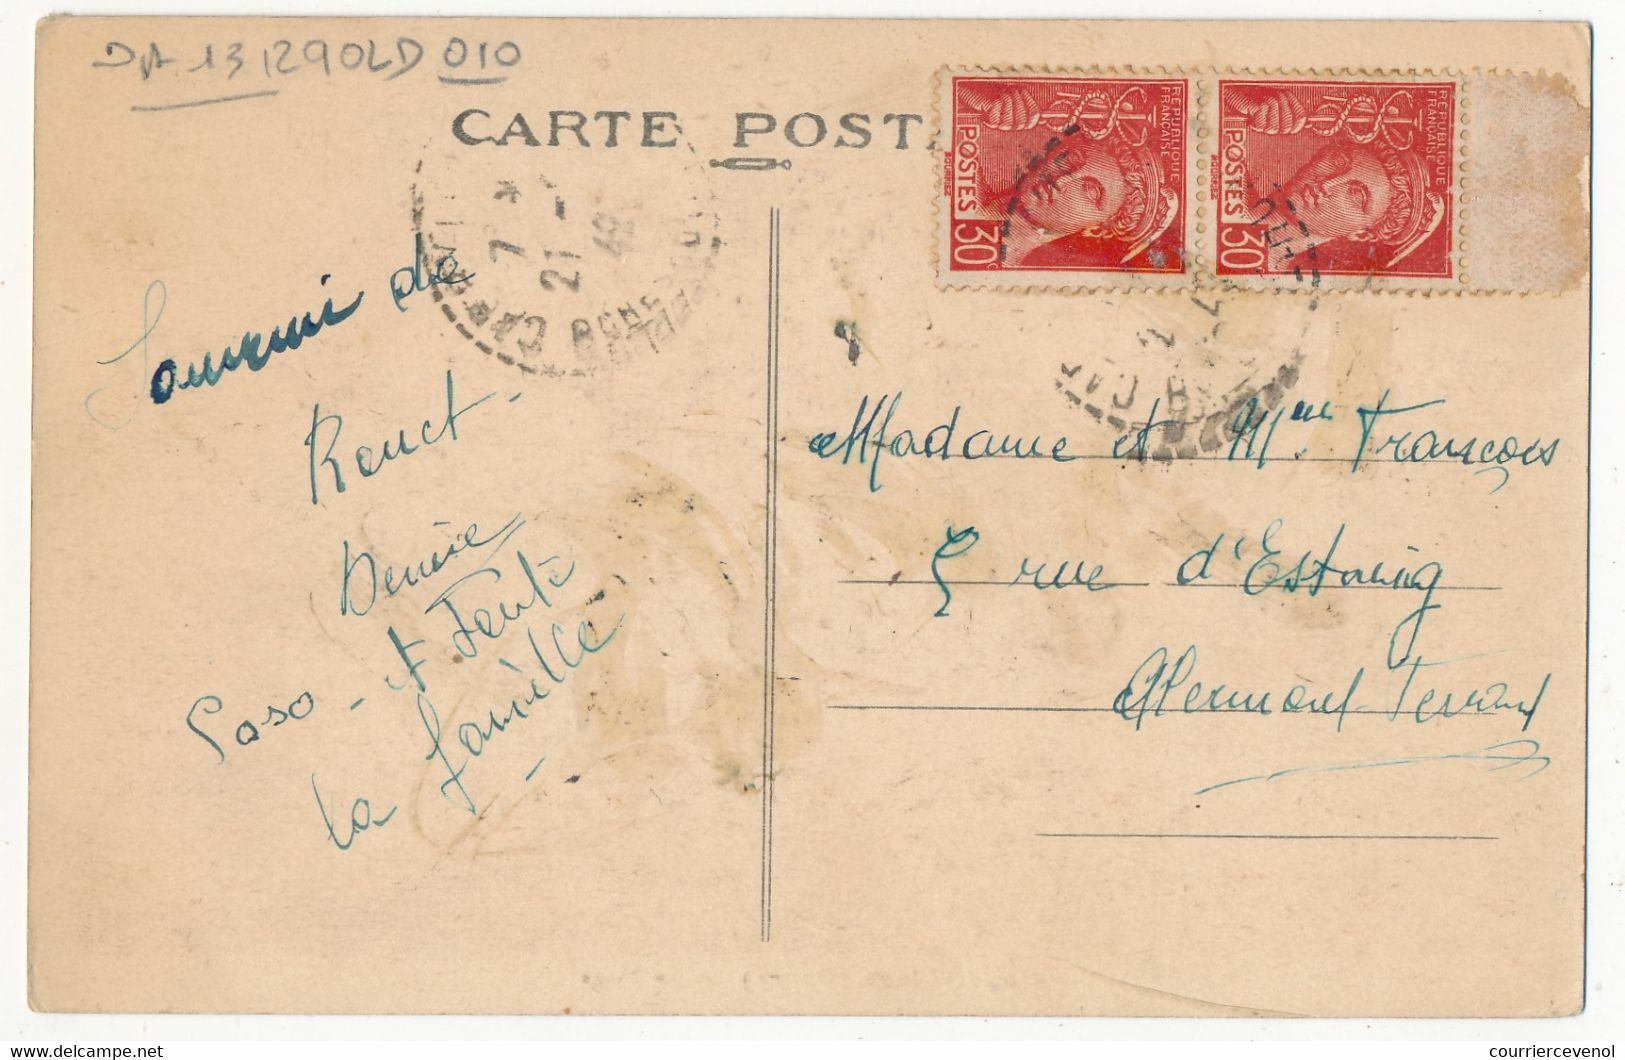 DA 13 1290LD 010
CARTE POST
RÉPUBLIQUE
FRANÇAISE
POSTES
30c
RÉPUBLIQUE
FRANÇAISE
POSTES
30c
7 *
21 -
Souvenir de
Denise
et toute
la famille
Madame et Mr François
5 rue d'Estaing
Clermont-Ferrand
www.delcampe.net
courriercevenol